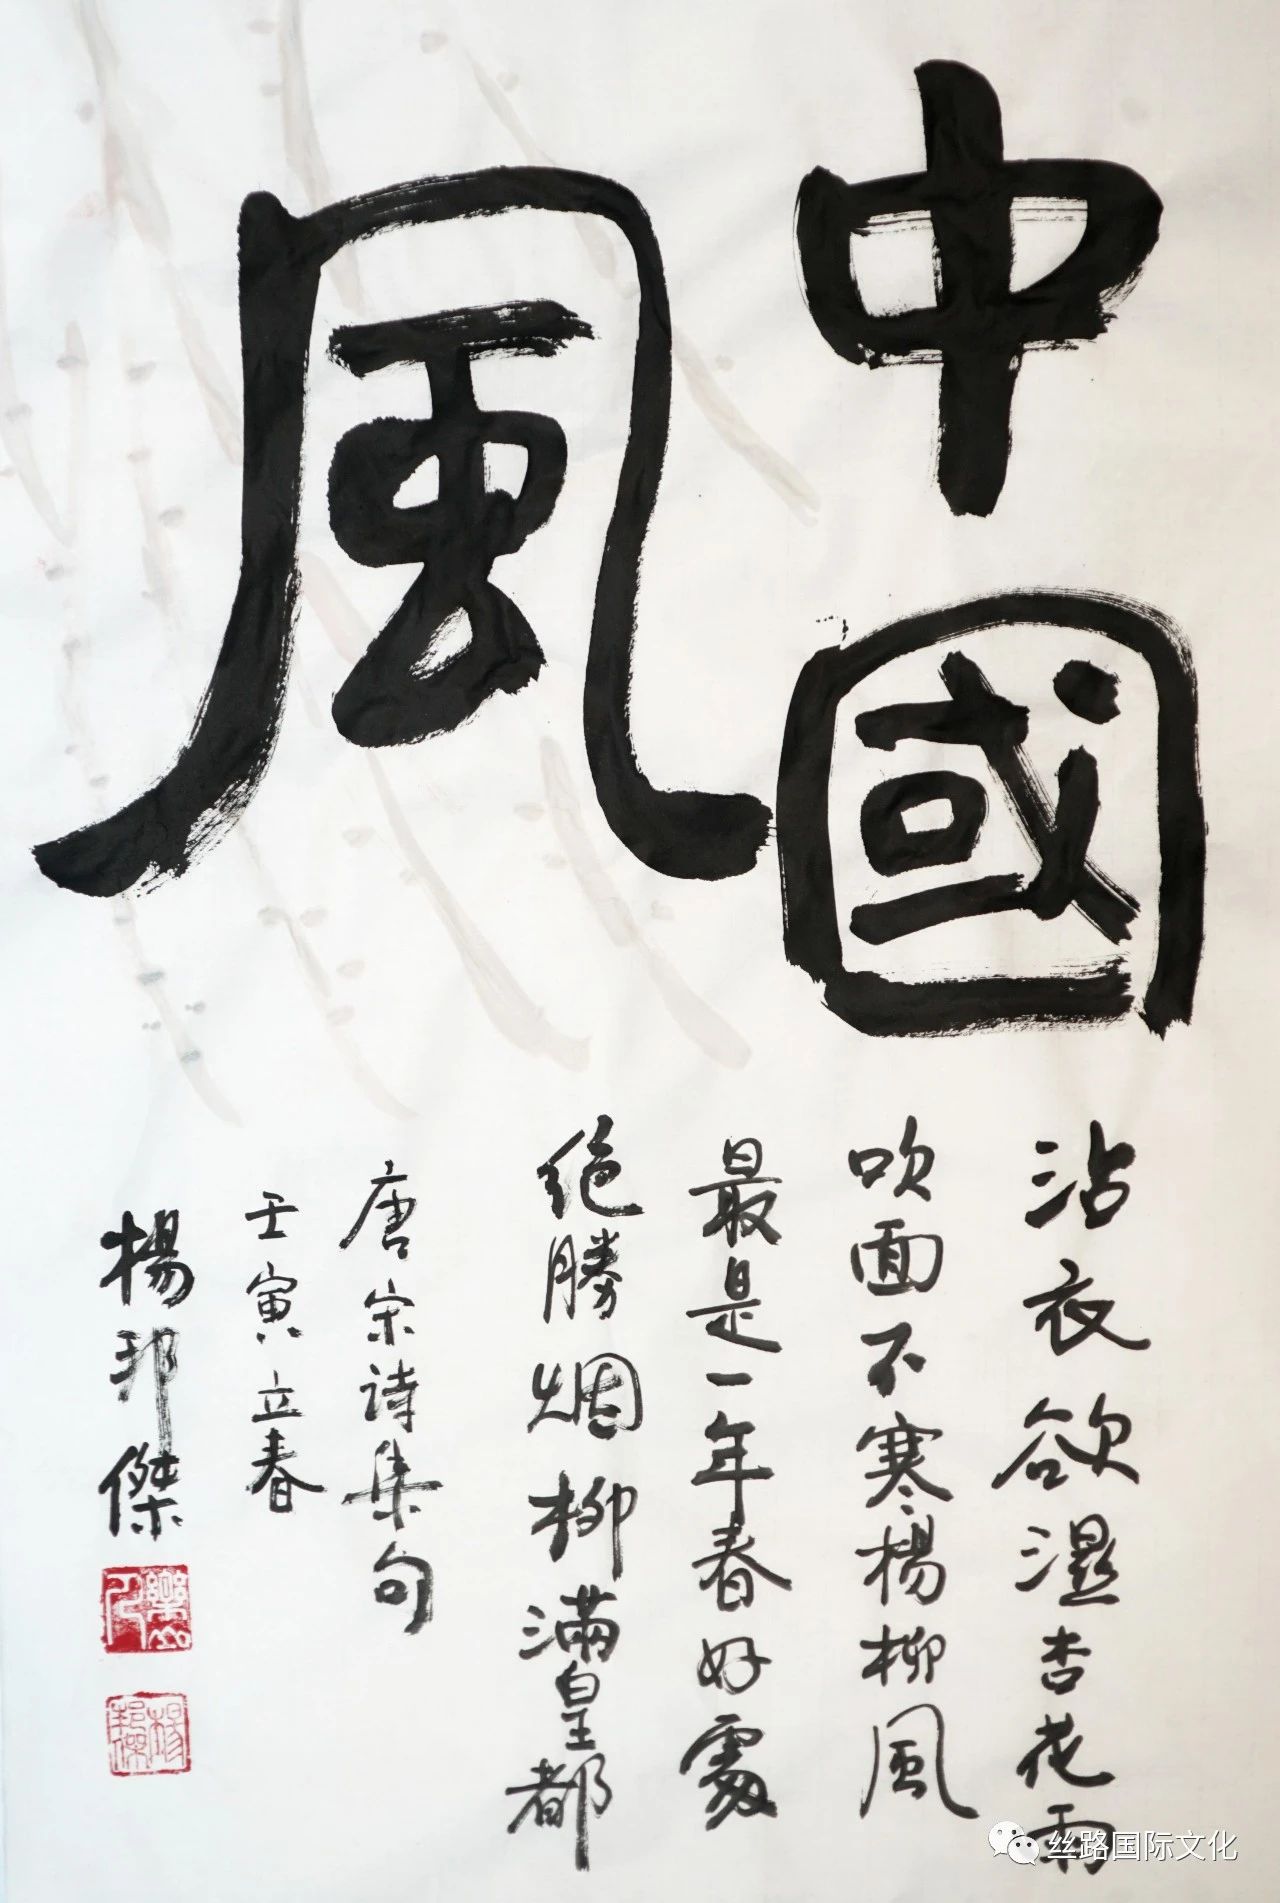 中國
風
沾衣欲濕杏花雨
吹面不寒楊柳風
最是一年春好處
绝勝烟柳滿皇都
唐宋诗集句
壬寅立春
楊邦傑
樂山人
楊邦傑
丝路国际文化